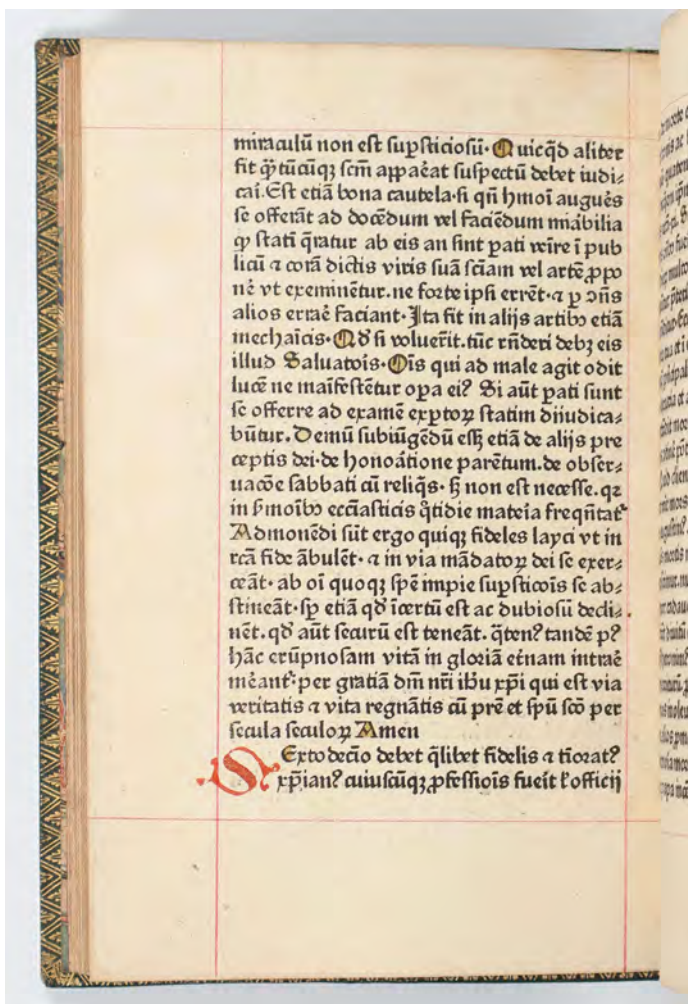 miraculū non est supsticiosū· Quicq̄d aliter
fit q̄tūcūqȝ scm̄ appaēat suspectū debet iudi⸗
cai᷑. Est etiā bona cautela·si qn̄ hmoī augues̄
se offerāt ad docēdum vel faciēdum mīabilia
ꝙ statī q̄ratur ab eis an sint ꝑati veīre ī pub
licū ⁊ corā dictis viris suā sciam̄ vel artē ꝓpo
nē vt exeminētur. ne forte ipsi errēt·⁊ ꝑ ↄn̄s
alios erraē faciant· Ita fit in alijs artibꝰ etiā
mechaīcis· Qđ si voluer̄it. tūc rn̄deri debȝ eis
illud Saluatoīs· Oīs qui ad male agit odit
lucē ne maīfestētur oꝑa eiꝰ Si aūt ꝑati sunt
se offerre ad examē exꝑtoꝝ statim dijudica⸗
būtur. Demū subiūgēdū esset etiā de alijs pre
ceptis dei·de honoātione parētum. de obser⸗
uacōe sabbati cū reliq̄s· sꝫ non est necesse. qꝛ
in ẜmoībꝰ ecciasticis q̄tidie mateīa freqn̄tat᷑
Admonēdi sūt ergo quiqȝ fideles layci vt in
rcā fide ābulēt· ⁊ in via mādatoꝝ dei se exer⸗
ceāt· ab oī quoqȝ spē impie supsticoīs se ab⸗
stineāt· sꝑ etiā qđ īcertū est ac dubiosū decli⸗
nēt. qđ aūt securū est teneāt. q̄tenꝰ tandē pꝰ
hāc erūpnosam vitā in gloriā et̄nam intraē
mēant᷑· per gratiā dm̄ nr̄i ih̄u xp̄i qui est via
veritatis ⁊ vita regnātis cū prē et spū scō per
secula seculoꝝ Amen
SExtodecīo debet q̄libet fidelis ⁊ tīoratꝰ
xp̄ianꝰ cuiuscūqȝ ꝓfessioīs fueīt ł officij